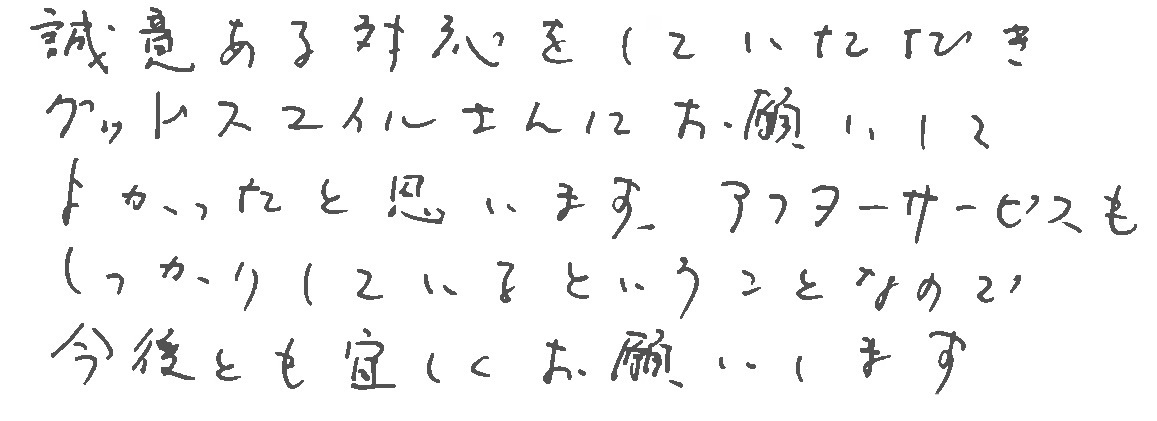 誠意ある対応をしていただき
グッドスマイルさんにお願いして
よかったと思います。アフターサービスも
しっかりしているということなので
今後とも宜しくお願いします